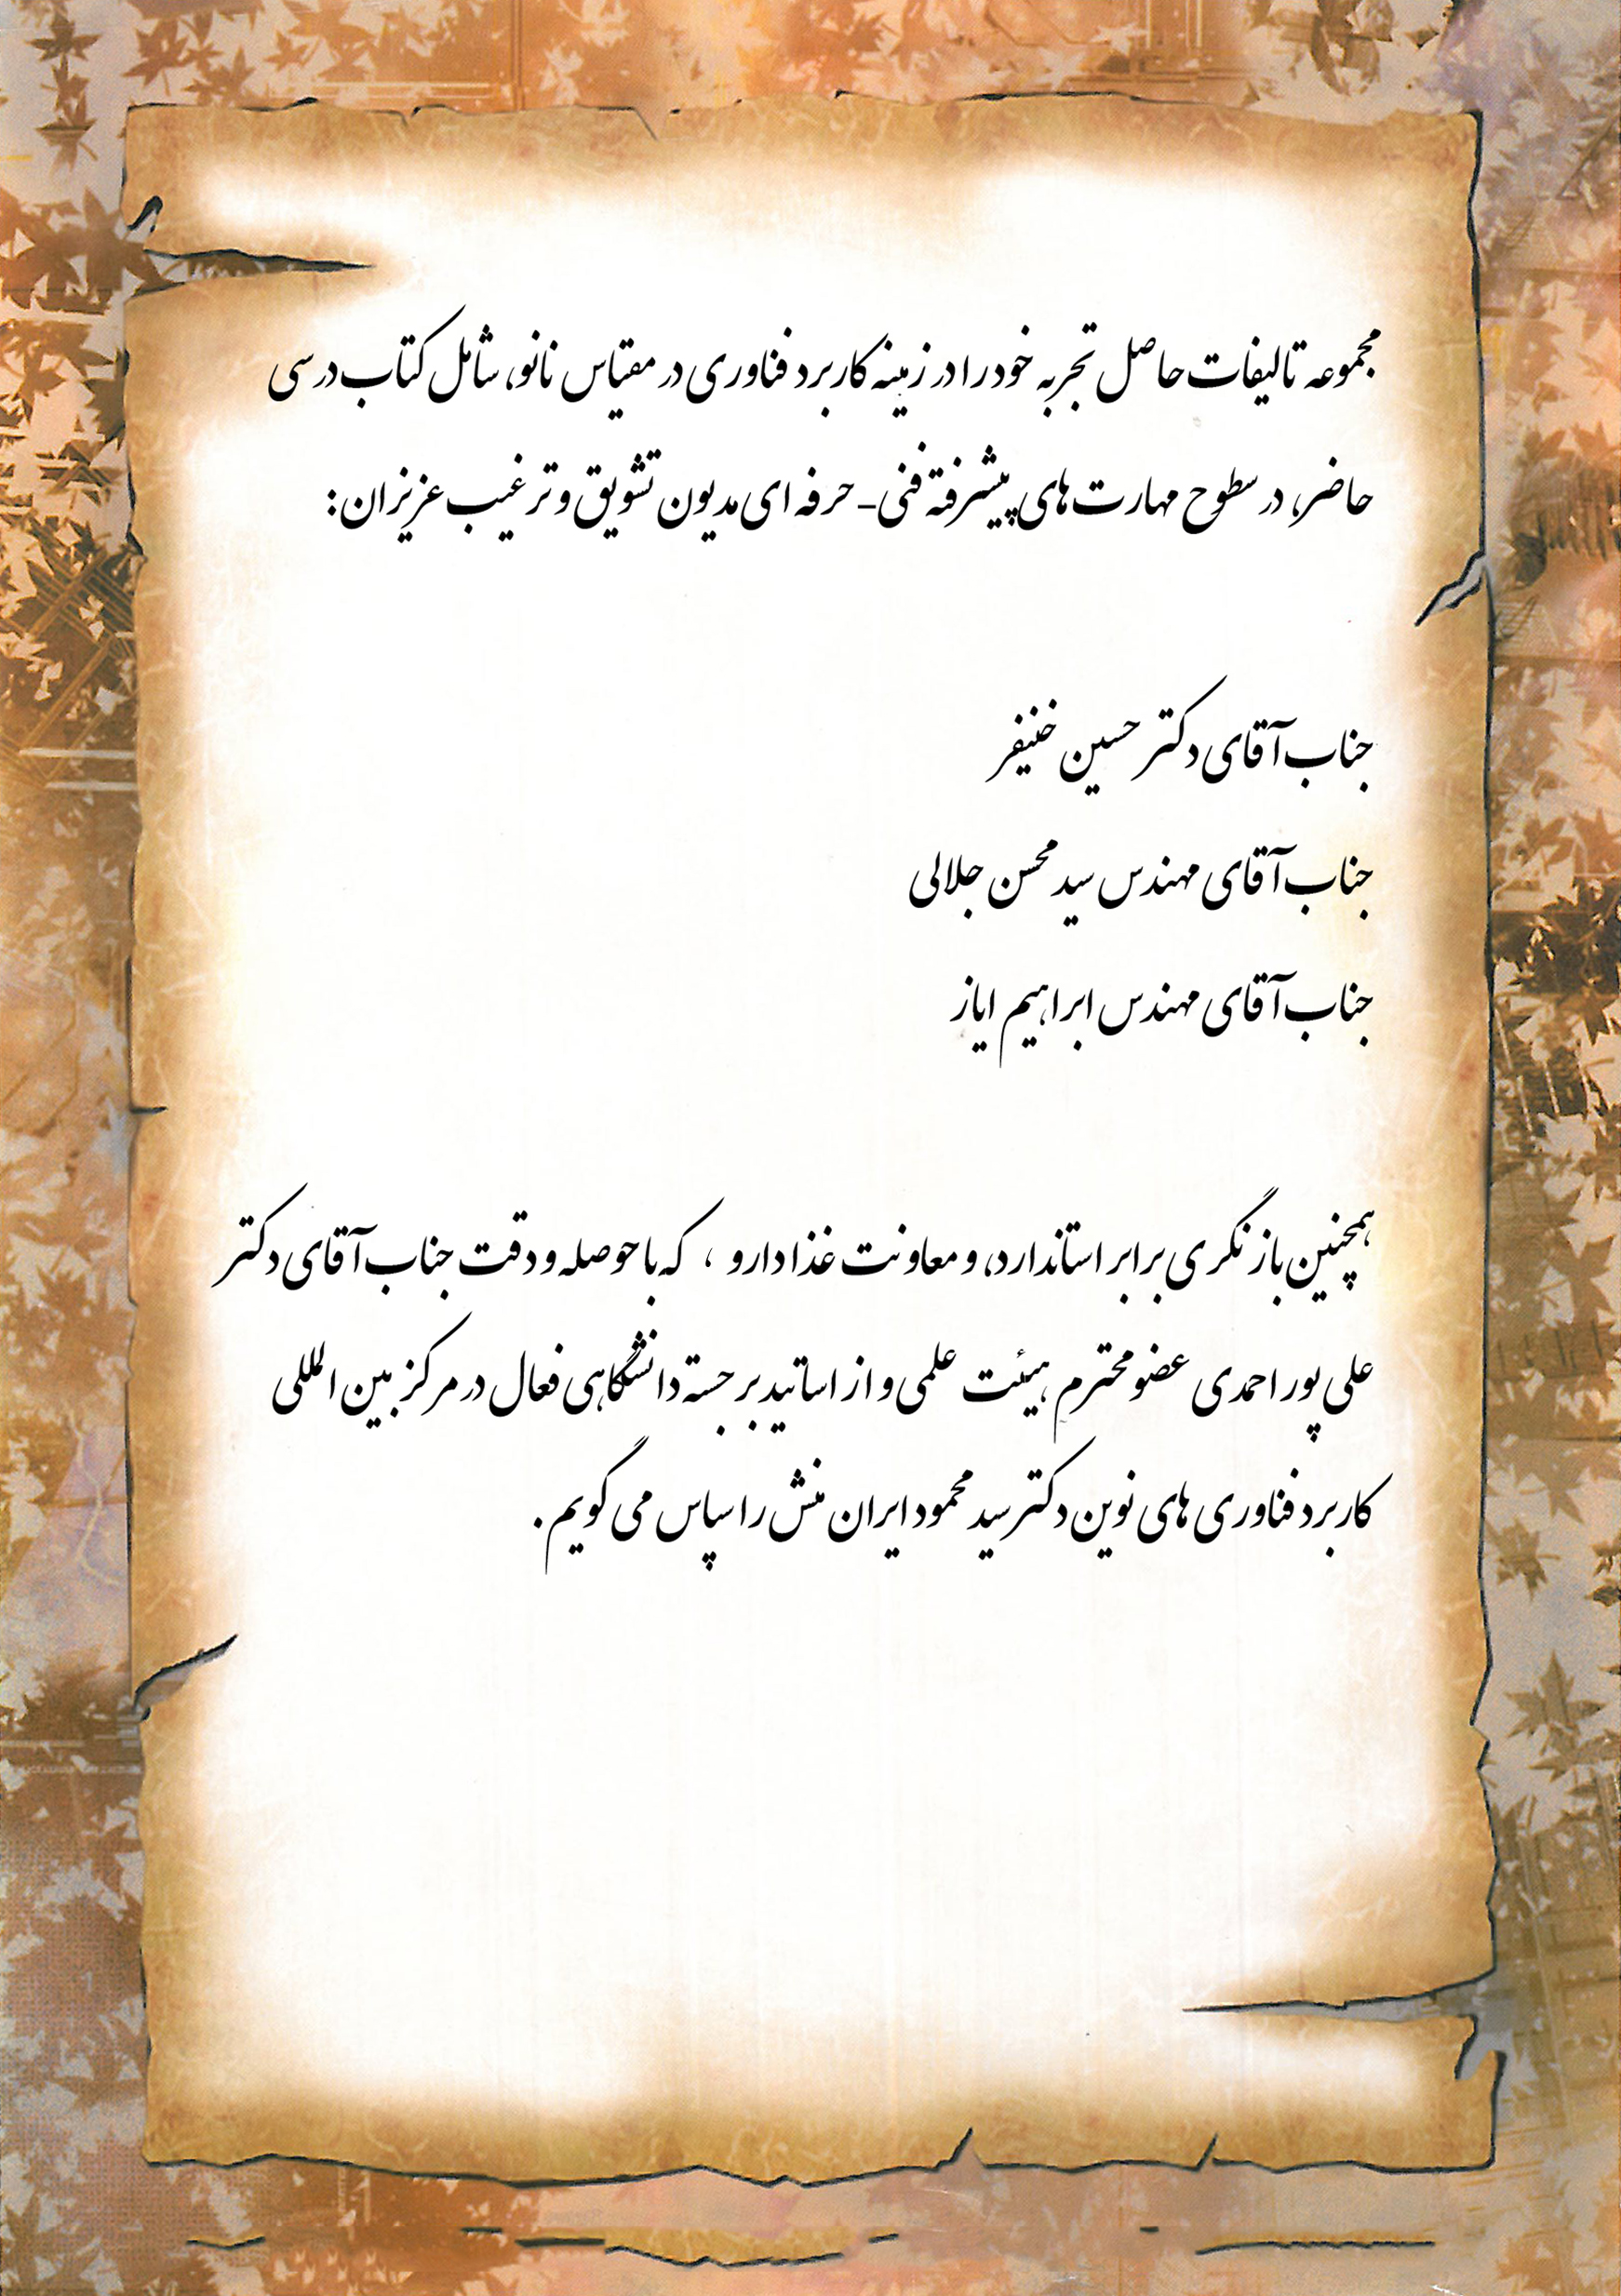 مجموعه تالیفات حاصل تجربه خود را در زمینه کاربرد فناوری در مقیاس نانو، شامل کتاب درسی
حاضر، در سطوح مهارت های پیشرفته فنی- حرفه ای مدیون تشویق و ترغیب عزیزان:
جناب آقای دکتر حسین خنیفر
جناب آقای مهندس سید محسن جلالی
جناب آقای مهندس ابراهیم ایاز
همچنین بازنگری برابر استاندارد، و معاونت غذا دارو ، که با حوصله و دقت جناب آقای دکتر
علی پور احمدی عضو محترم هیئت علمی و از اساتید برجسته دانشگاهی فعال در مرکز بین المللی
کاربرد فناوری های نوین دکتر سید محمود ایران منش را سپاس می گویم.